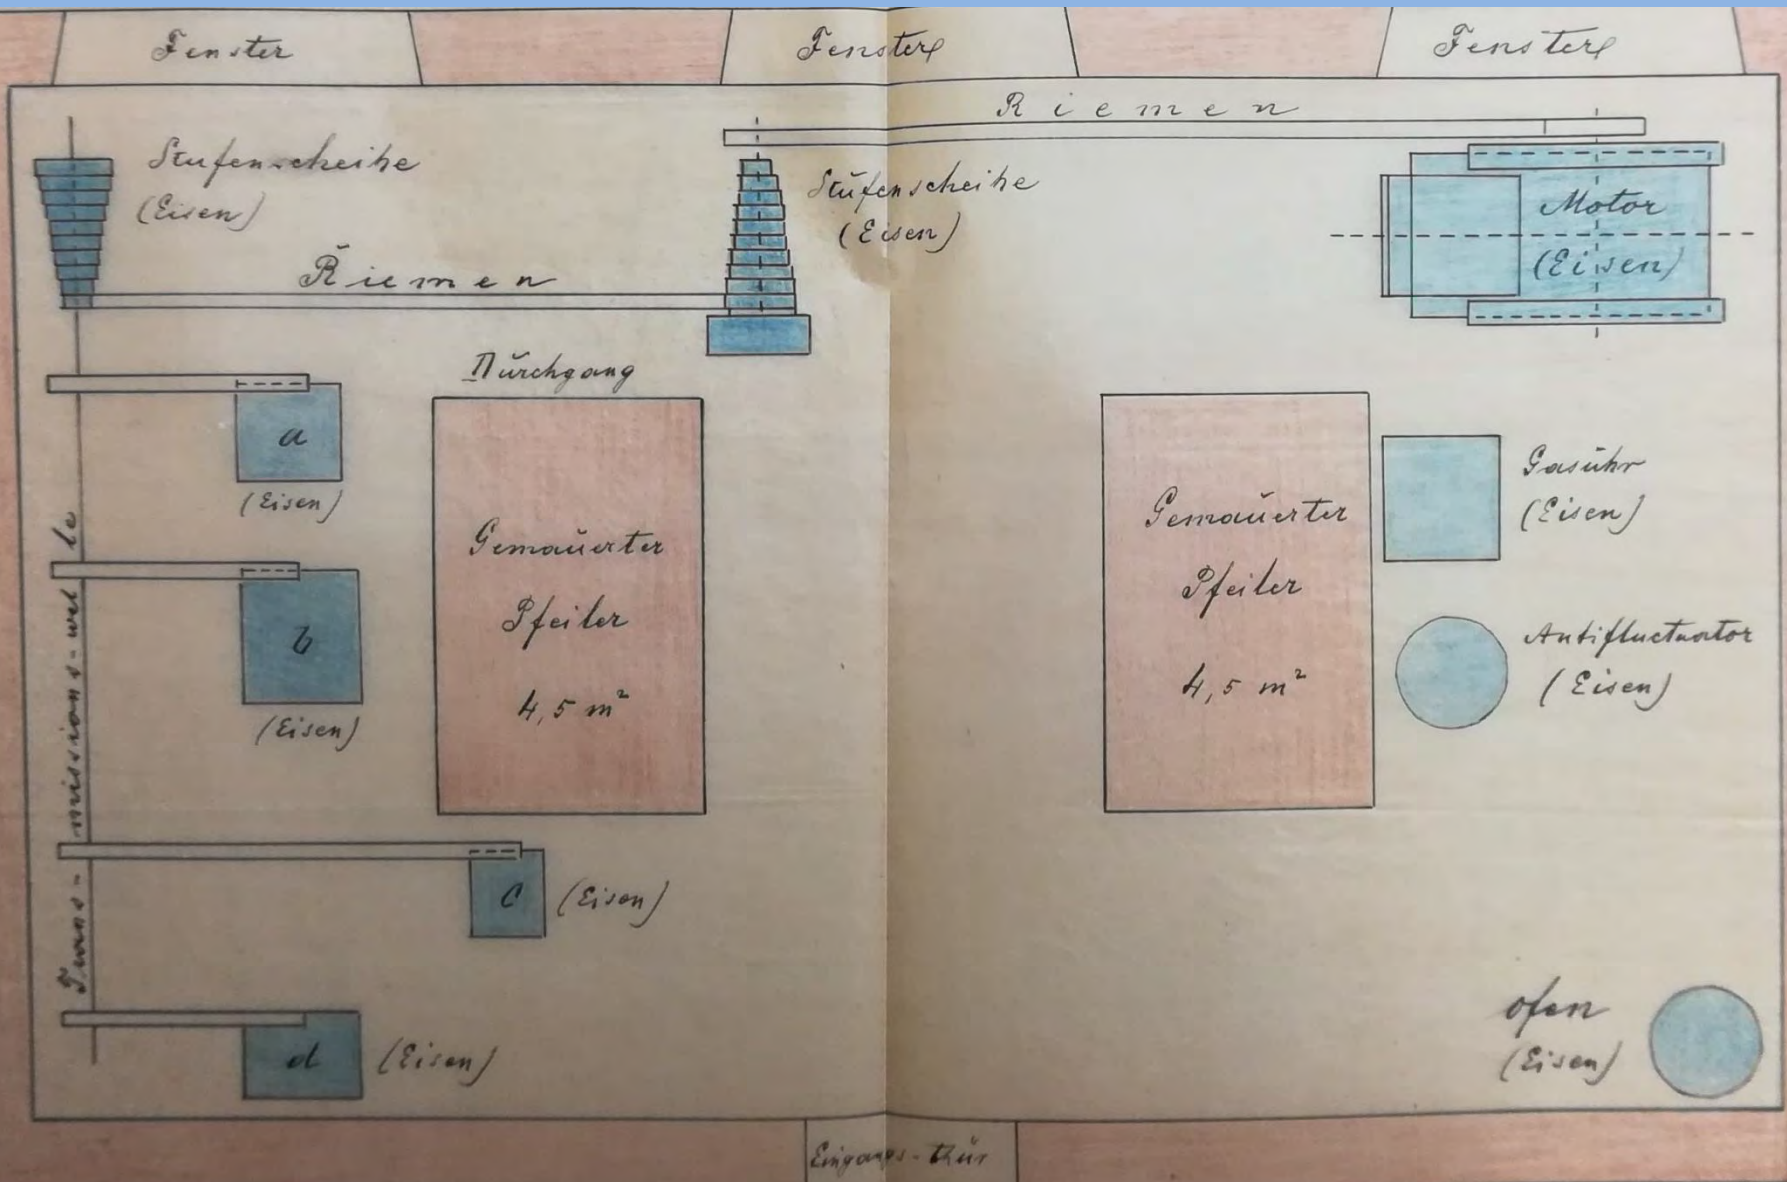 Fenster
Fenster
Fenster
Riemen
Stufenscheibe
(Eisen)
Stufenscheibe
(Eisen)
Motor
(Eisen)
Riemen
Durchgang
a
(Eisen)
b
(Eisen)
Gemauerter
Pfeiler
4,5 m²
Gemauerter
Pfeiler
4,5 m²
Gasuhr
(Eisen)
Antifluctuator
(Eisen)
Trans-missions-welle
c
(Eisen)
d
(Eisen)
Ofen
(Eisen)
Eingangs-thür